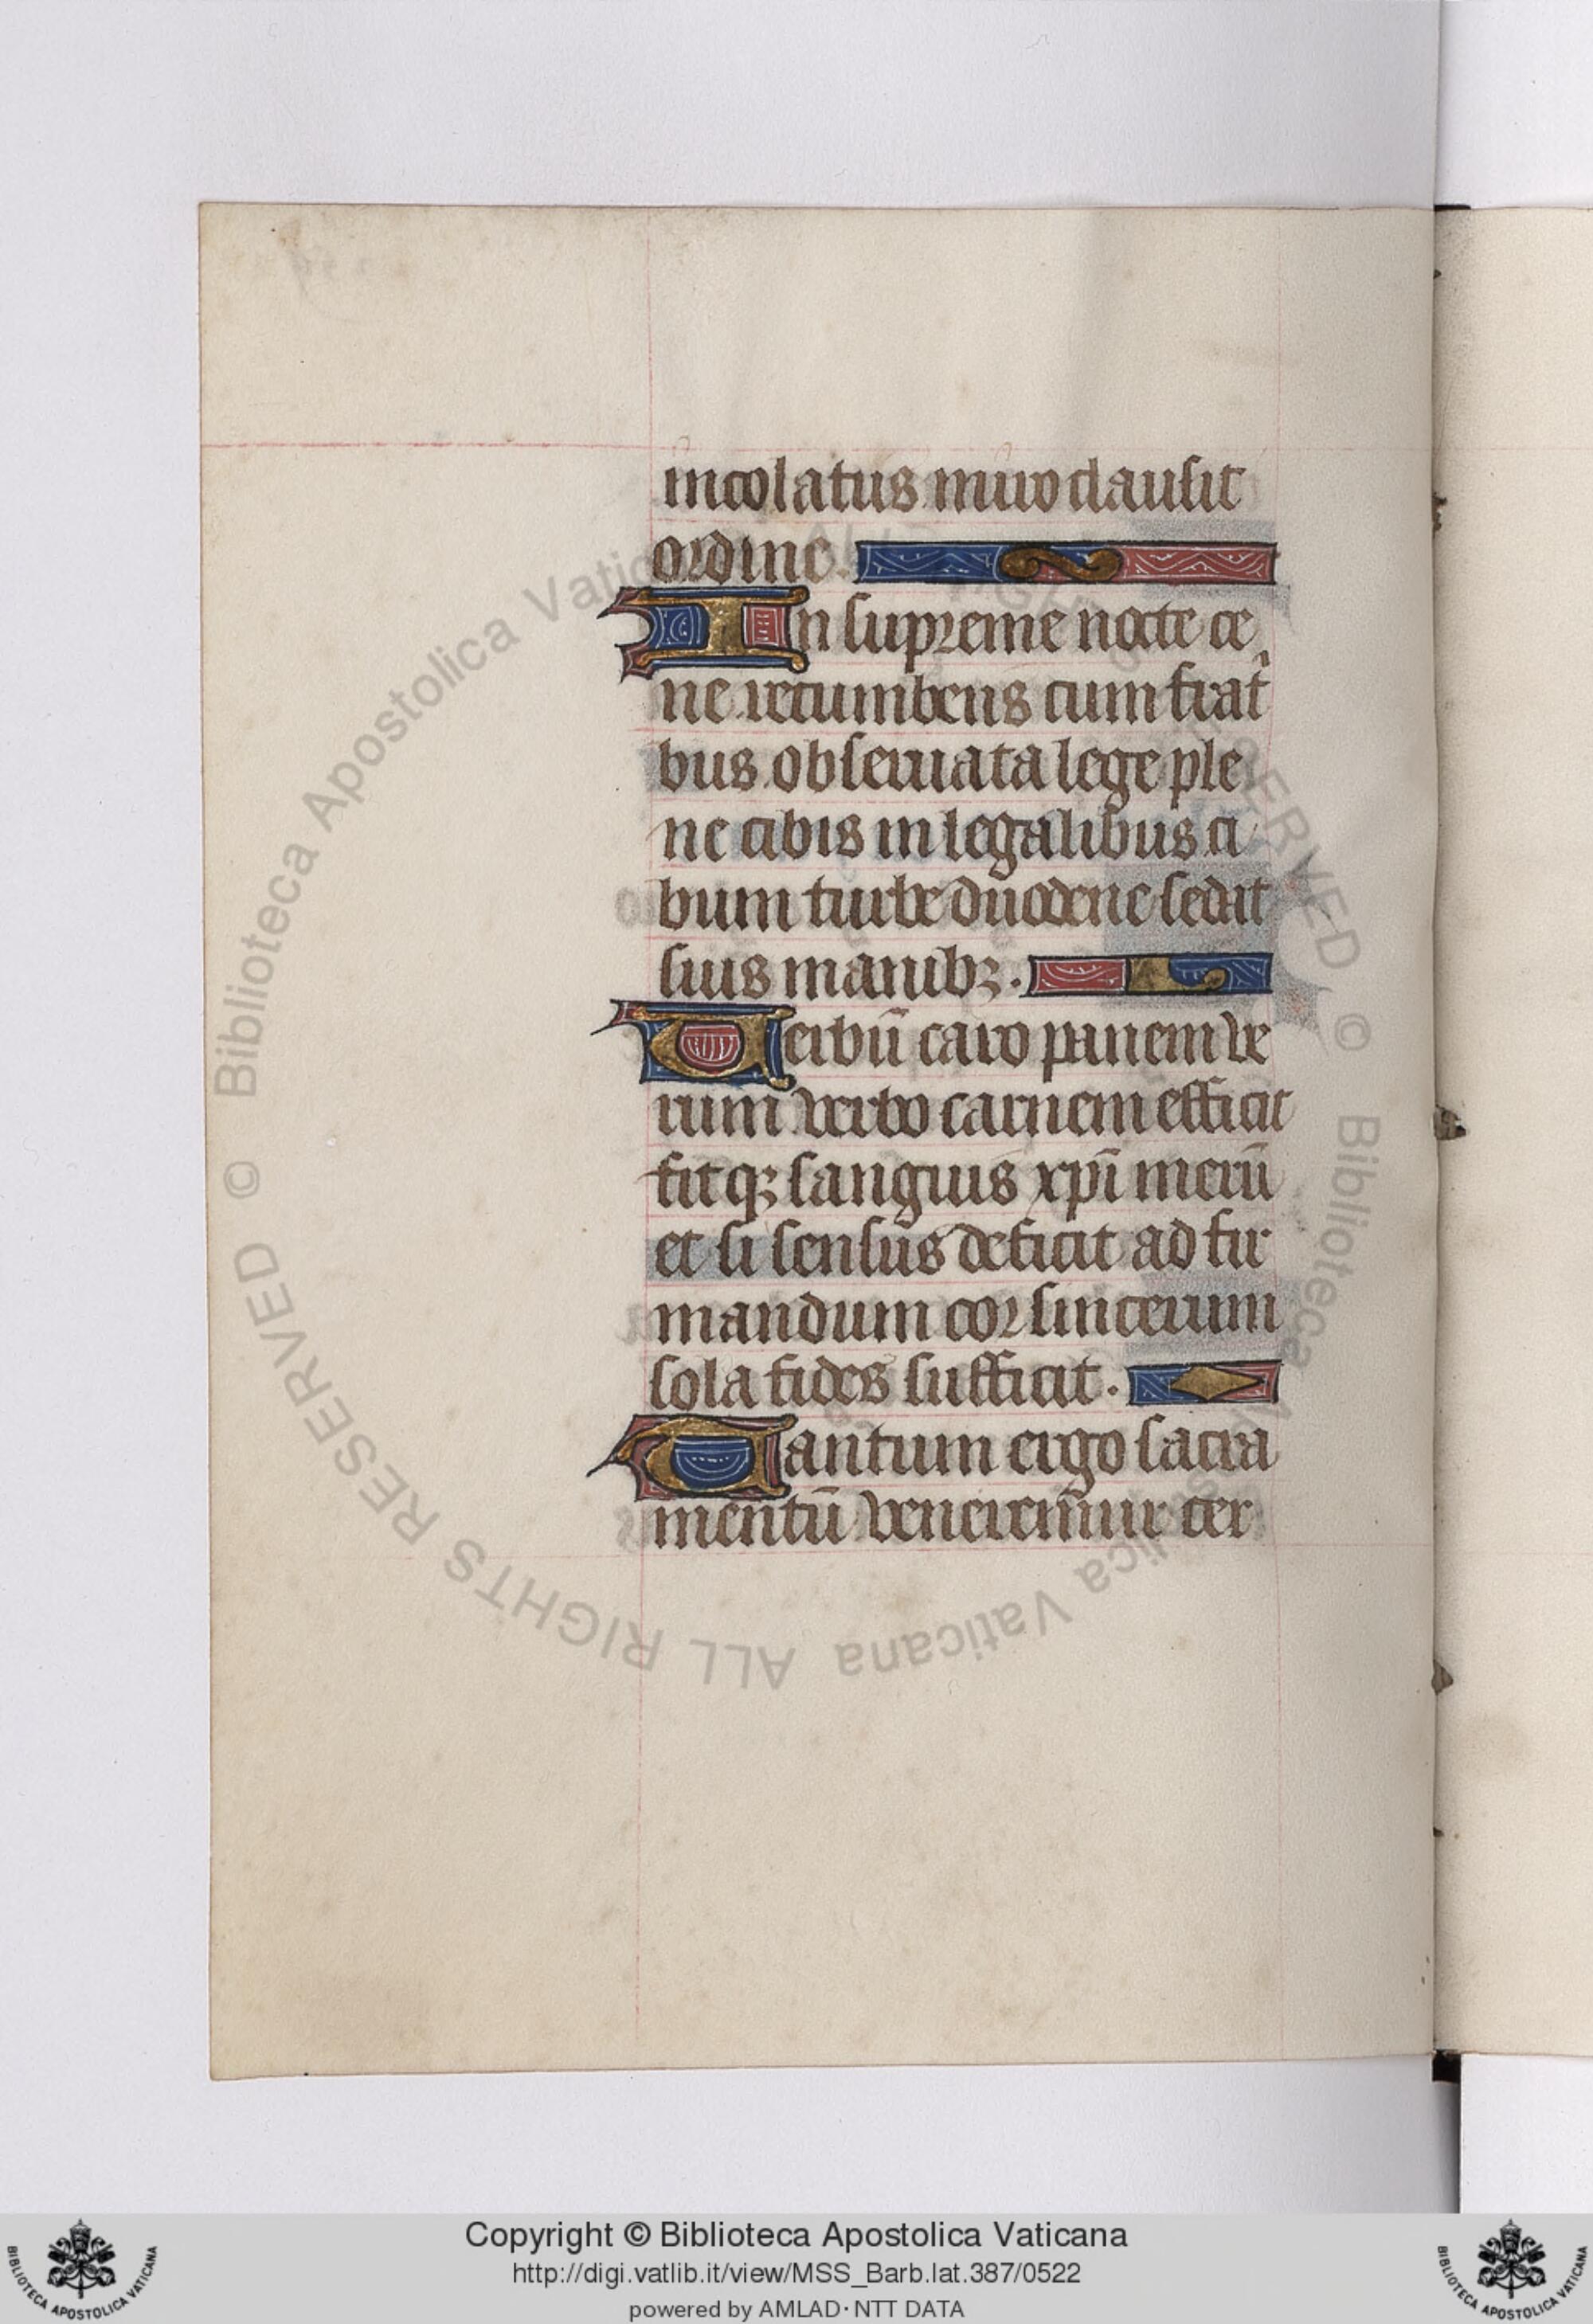 incolatus miro clausit
ordine.
In supreme nocte ce
ne recumbens cum frat̾
bus obseruata lege ple
ne cibis in legalibus ci
bum turbe duodene se dat
suis manibꝫ.
Verbū caro panem ve
rum verbo carnem efficit
fitqꝫ sanguis xp̄i merū
et si sensus deficit ad fir
mandum cor sincerum
sola fides sufficit.
Tantum ergo sacra
mentū veneremur cer
© Biblioteca Apostolica Vaticana ALL RIGHTS RESERVED © Biblioteca Apostolica Vaticana ALL RIGHTS RESERVED
Copyright © Biblioteca Apostolica Vaticana
http://digi.vatlib.it/view/MSS_Barb.lat.387/0522
powered by AMLAD·NTT DATA
BIBLIOTECA APOSTOLICA VATICANA
BIBLIOTECA APOSTOLICA VATICANA